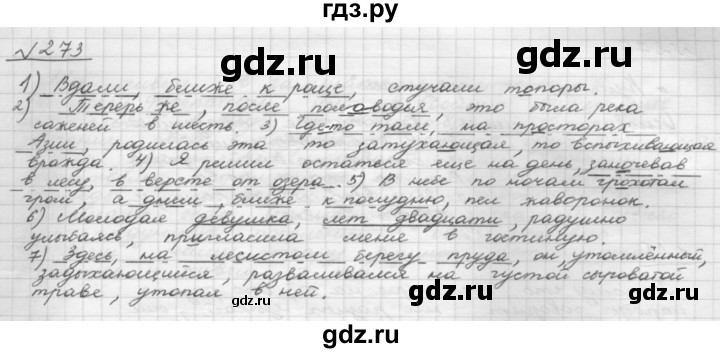 гдз.ру
√273
gdz.ru gdz.ru
1) Вдали, ближе к роще, стучали топоры.
2) Теперь же, после половодия, это была река
саженей в шесть. 3) Где-то там, на просторах
Азии, родилась эта то затухающая, то вспыхивающая
вражда. 4) Я решил остаться еще на день, заночевав
в лесу, в версте от озера. 5) В небе по ночам грохотал
гром, а днем, ближе к полудню, пел жаворонок.
6) Молодая девушка, лет двадцати, радушно
улыбаясь, пригласила меня в гостиную.
7) Здесь, на лесистом берегу пруда, он, утомлённый,
задыхающийся, разваливался на густой сыроватой
траве, утопал в ней.
gdz.ru
gdz.ru
gdz.ru
gdz.ru
gdz.ru